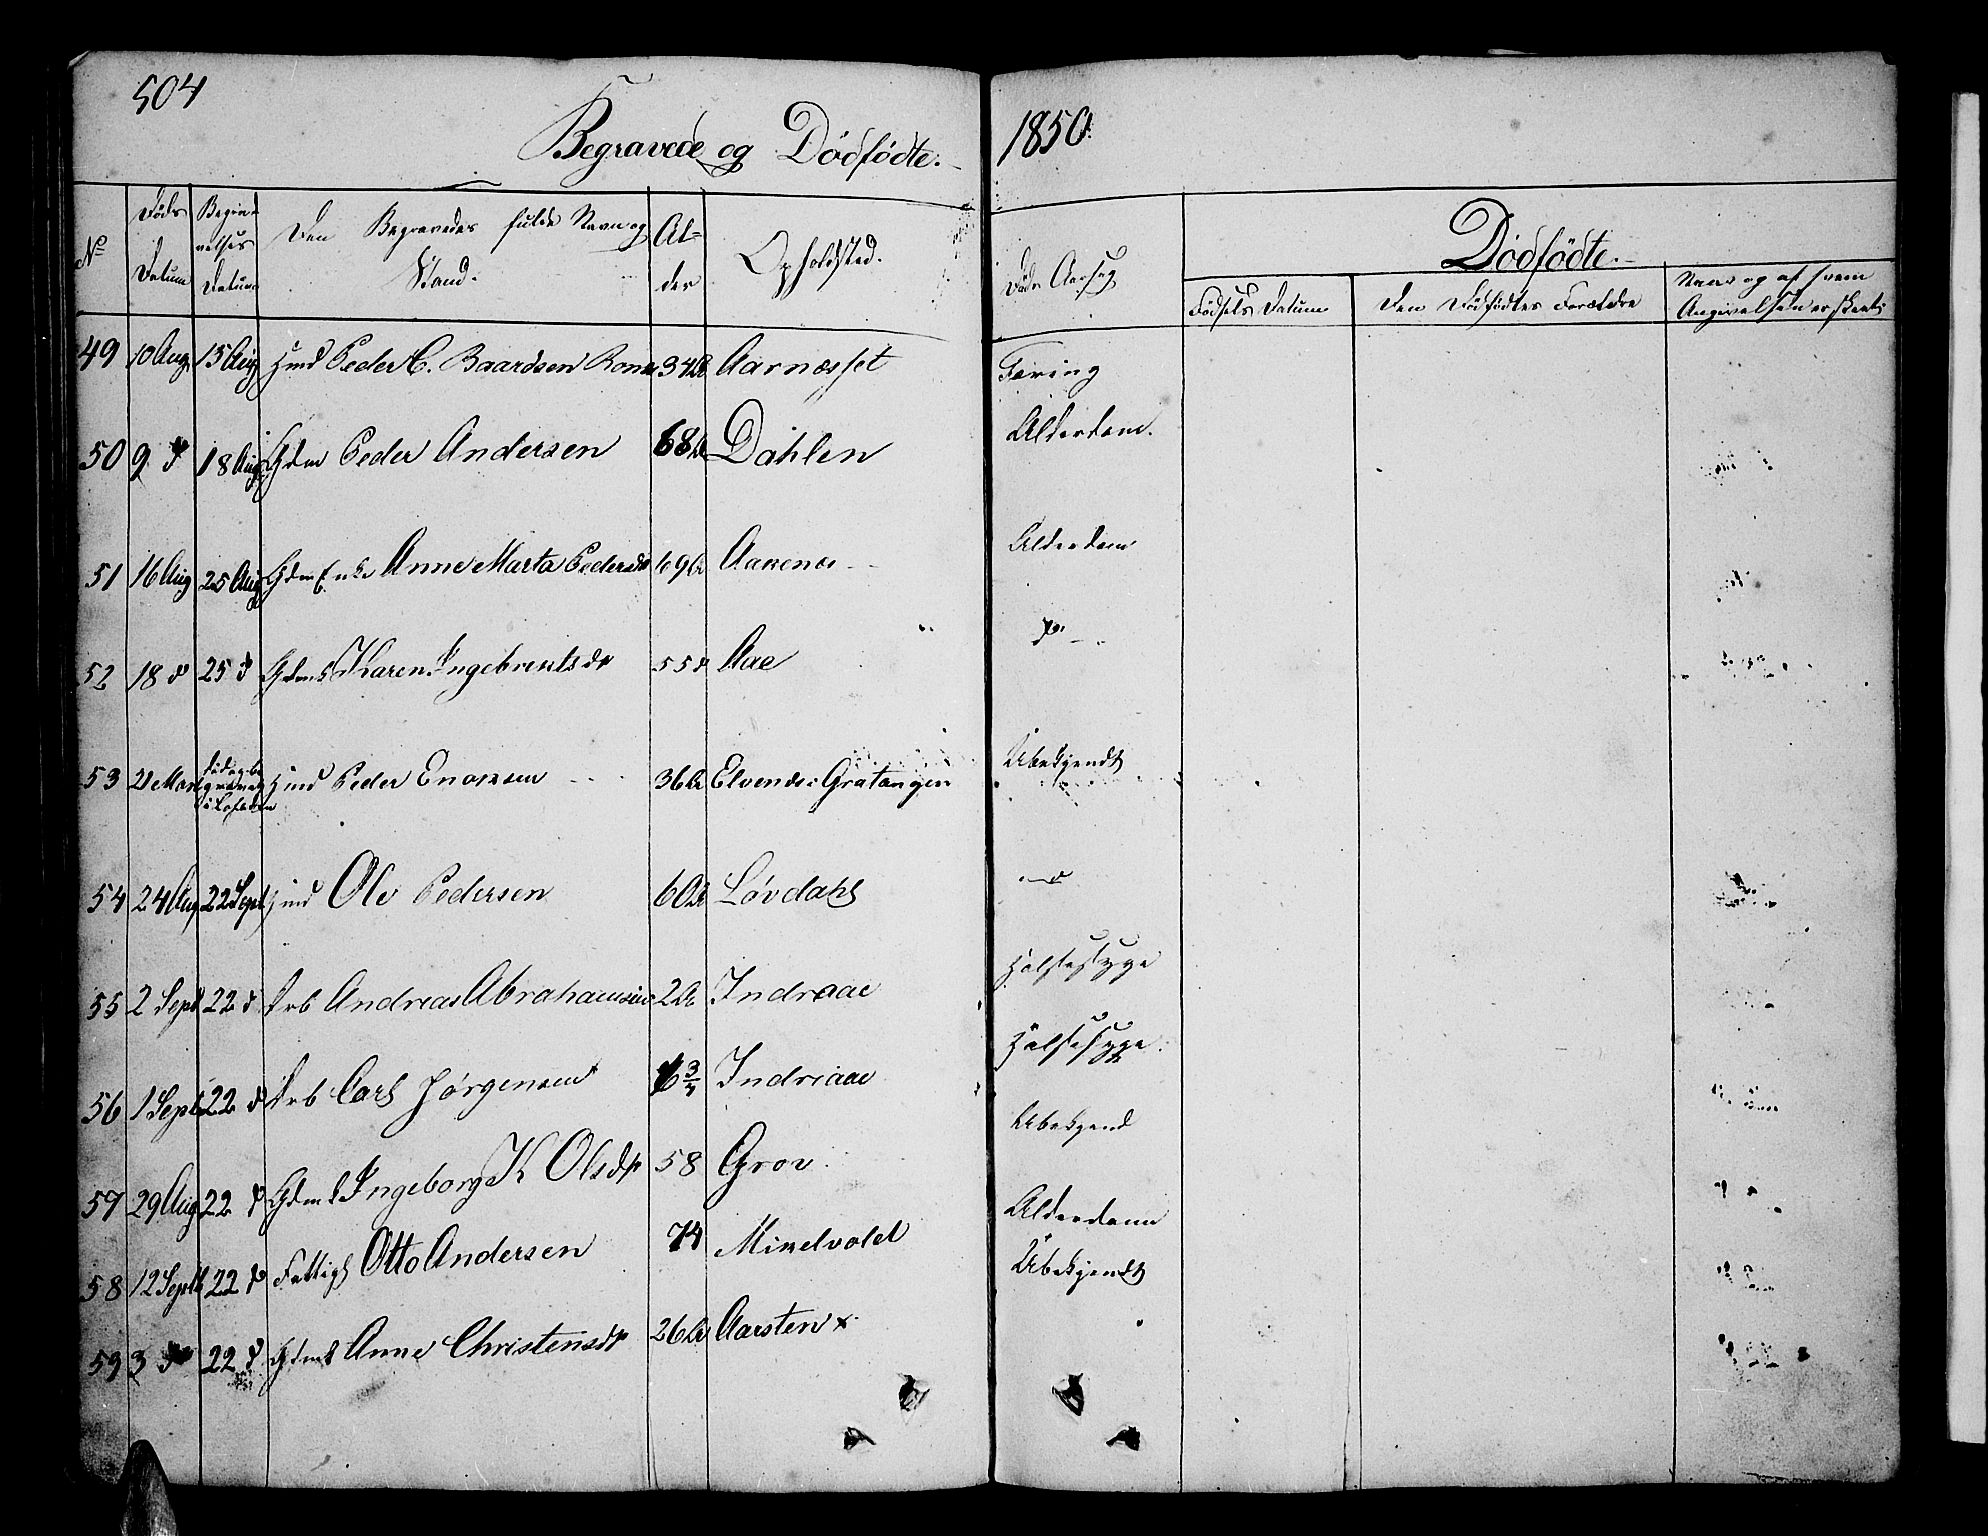 504
Begravede og Dödfödte.
1850
No
Döds Datum
Begravelses Datum
Den Begravedes fulde Navn og Stand.
Alder
Opholdsted.
Döds Aarsag
Dödfödte.
Födsels Datum
Den Dödfödtes Forældre
Naar og af hvem Angivelsen er skeet
49 10 Aug 15 Aug Hmd Peder C. Baardsen 34 Aar Aarnæsset Tæring
50 9 d 18 Aug Gdm Peder Andersen 68 Aar Dahlen Alderdom.
51 16 Aug 25 Aug Gdm Enke Anne Marta Pedersdr 69 Aar Alderdom
52 18 d 25 d Gdmk Karen Ingebrentsdr 55 d Aae do
53 Hmd Peder Enoksen 36 Aar Elvenes i Gratangen Ubekjendt
54 24 Aug 22 Sept Hmd Ole Pedersen 60 Aar Løvdahl — d
55 2 Sept 22 d Drb Andreas Abrahamsen 2 Aar Indreaae Halssyge
56 1 Sept 22 d Drb Carl Jørgensen Indreaae Halssyge.
57 29 Aug 22 d Gdmk Ingeborg K Olsdr 58 Grov Ubekjend
58 12 Sept 22 d Fattigl Otto Andersen 74 Alderdom
59 3 d 22 d Gdmk Anne Christensdr 26 Aar Aarsten x Ubekjendt